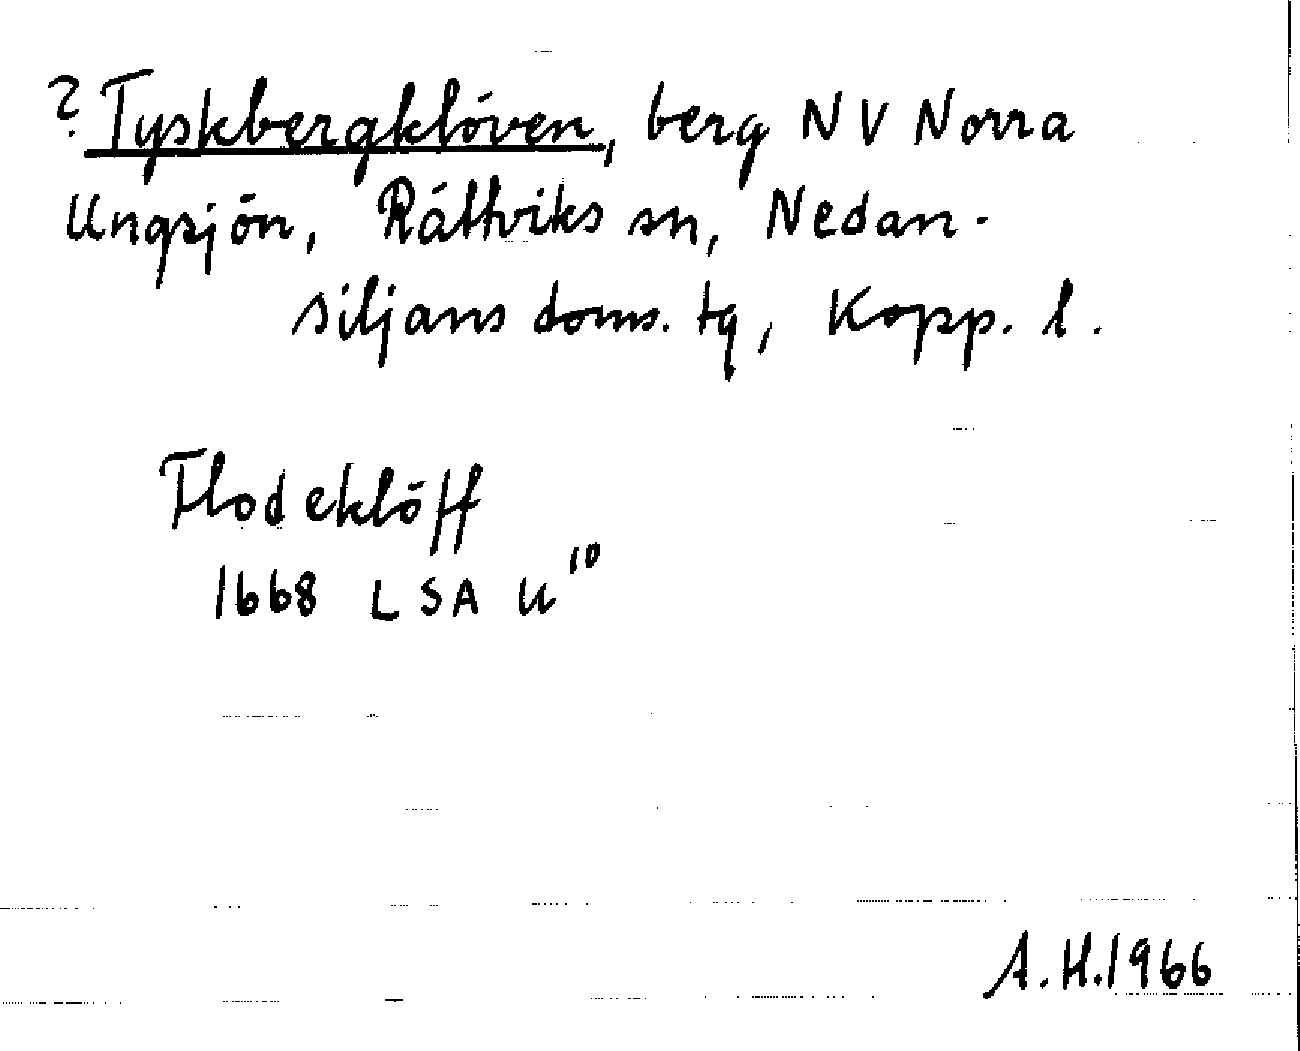 ? Tyskbergklöven, berg NV Norra
Ungsjön, Rättviks sn, Nedan-
siljans doms. tg, Kopp. l.
Flodeklöff
1668 LSA U¹⁰
A.H.1966